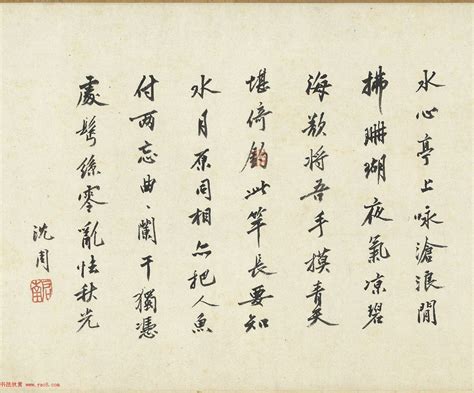 水心亭上咏滄浪閒
拂珊瑚夜氣凉碧
海欲將吾手摸青天
堪倚釣此竿長要知
水月原同相亦把人魚
付兩忘曲〻闌干獨憑
處鬂絲零亂怯秋光
沈周
书法欣赏